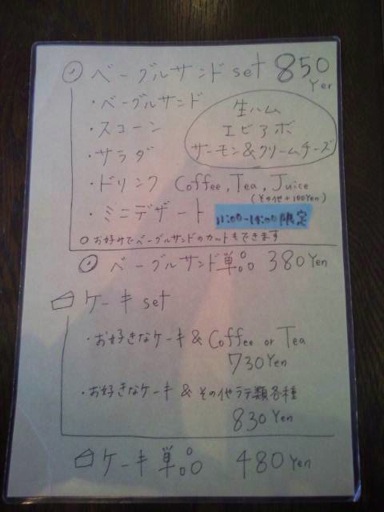 ベーグルサンド set 850 Yen
・ベーグルサンド
生ハム
・スコーン
エビアボ
・サラダ
サーモン&クリームチーズ
・ドリンク Coffee, Tea, Juice
(その他+100Yen)
・ミニデザート 限定
○お好みでベーグルサンドのカットもできます
ベーグルサンド単品 380 Yen
ケーキ set
・お好きなケーキ & Coffee or Tea
730 Yen
・お好きなケーキ & その他ラテ類各種
830 Yen
ケーキ単品 480 Yen